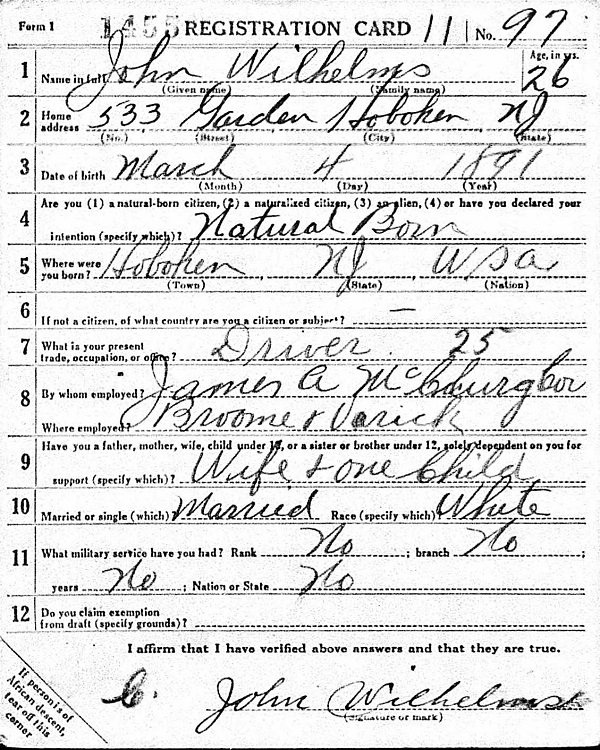 Form 1 1455 REGISTRATION CARD 11 No. 97
1 Name in full John Wilhelms Age, in yrs. 26
(Given name) (Family name)
2 Home address 533 Garden Hoboken NJ
(No.) (Street) (City) (State)
3 Date of birth March 4 1891
(Month) (Day) (Year)
4 Are you (1) a natural-born citizen, (2) a naturalized citizen, (3) an alien, (4) or have you declared your
intention (specify which)? Natural Born
5 Where were you born? Hoboken NJ USA
(Town) (State) (Nation)
6 If not a citizen, of what country are you a citizen or subject? —
7 What is your present trade, occupation, or office? Driver 25
8 By whom employed? James A
Where employed? Broome & Varick
9 Have you a father, mother, wife, child under 12, or a sister or brother under 12, solely dependent on you for
support (specify which)? Wife & one Child
10 Married or single (which) Married Race (specify which)? White
11 What military service have you had? Rank No ; branch No ;
years No ; Nation or State No
12 Do you claim exemption from draft (specify grounds)?
I affirm that I have verified above answers and that they are true.
John Wilhelms
(Signature or mark)
If person is of African descent, tear off this corner